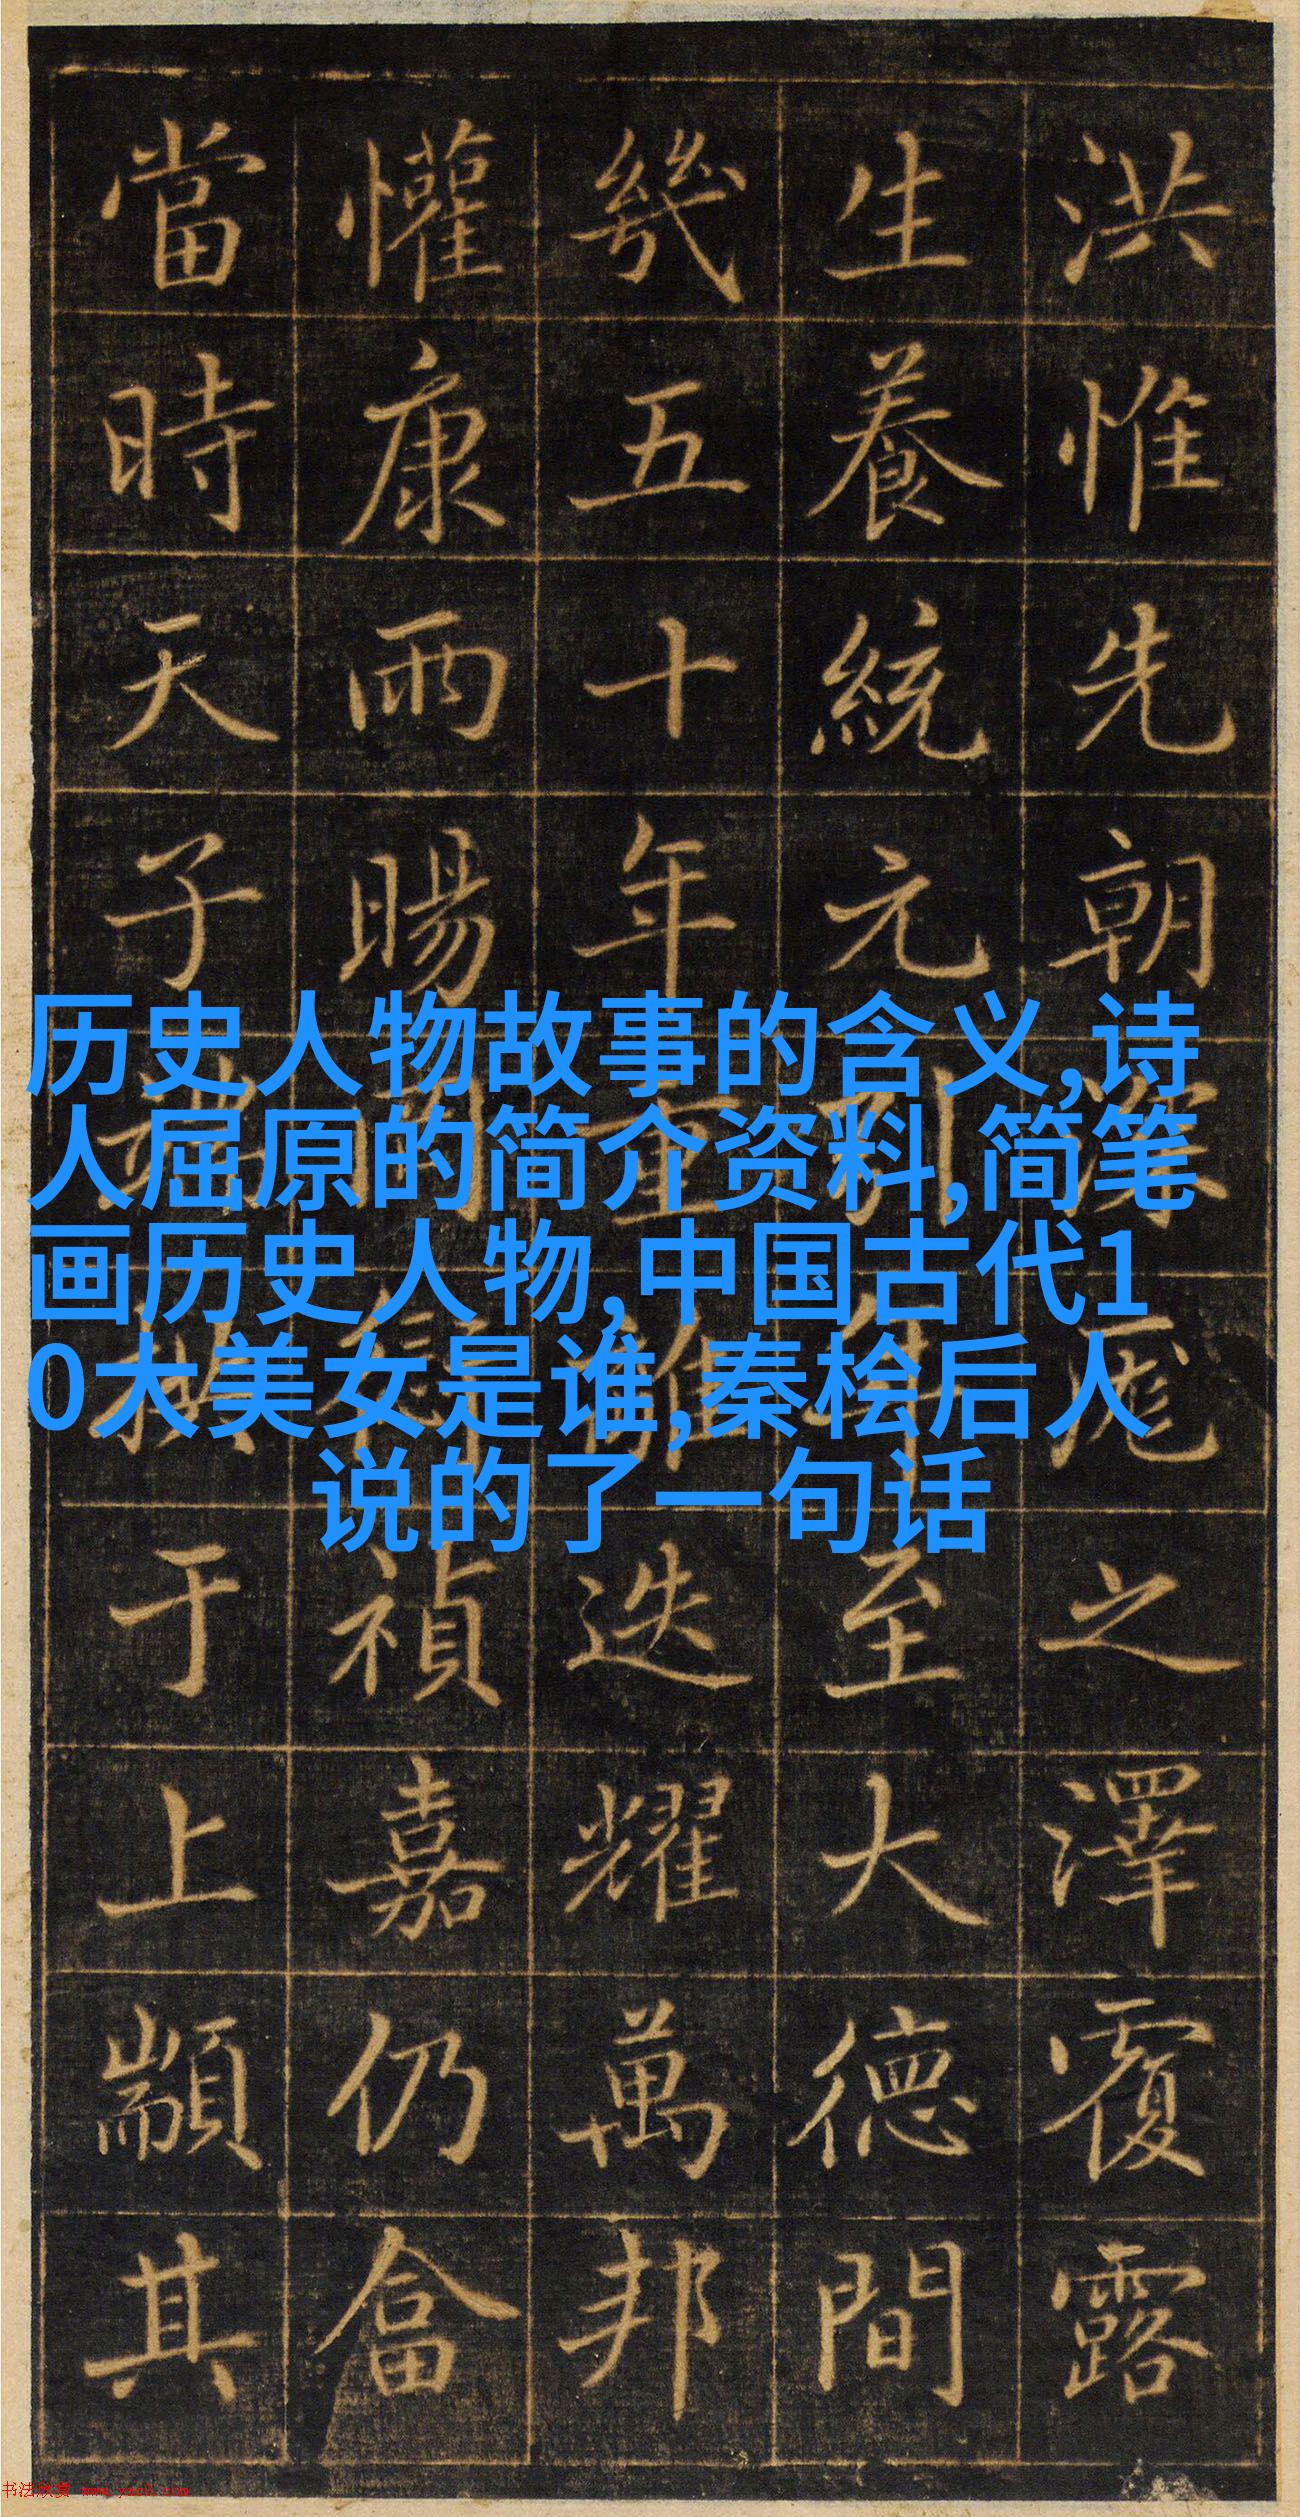 历史人物故事的含义,诗
人屈原的简介资料,简笔
画历史人物,中国古代1
0大美女是谁,秦桧后人
说的了一句话
洪惟先朝深厖之澤覆露
生養統元引年至大德間
幾五十年重離迭耀萬邦
懽康雨暘禎嘉仍
當時天子于上顓其
书法欣赏